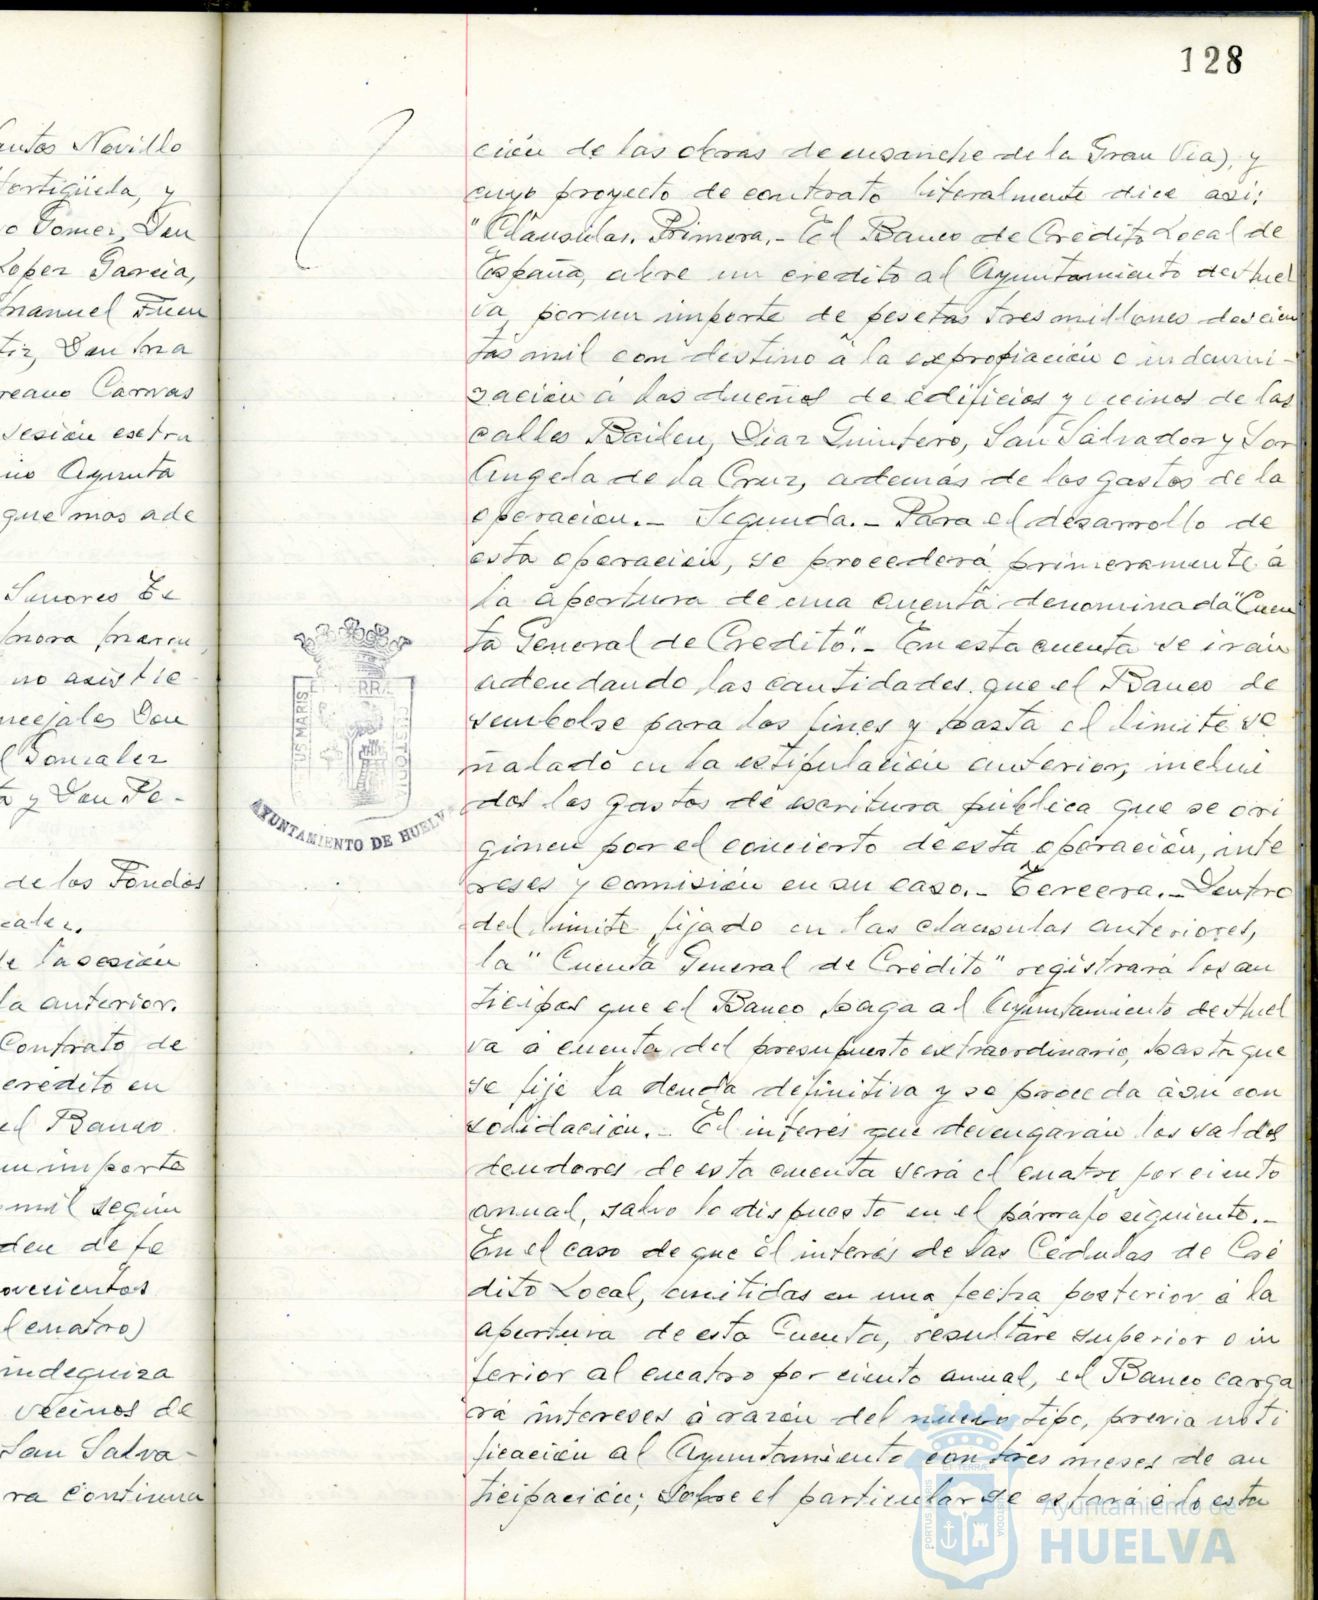 128
antos Novillo
Hortigüela, y
o Gomez, Don
Lopez Garcia,
manuel Fuen
tiz, Don
reano Carvas
sesión extra
mo Ayunta
que mas ade
Senores Te
mora
no asistie-
ncejales Don
l Gonzalez
ta y Don Pe-
de los Fondos
zalez.
de la sesión
la anterior.
Contrato de
credito en
el Banco
un importe
mil según
den de fe
ovecientos
l cuatro)
indemniza
vecinos de
San Salva-
ra continua
ción de las obras de ensanche de la Gran Via), y
cuyo proyecto de contrato literalmente dice asi:
"Cláusulas. Primera.- El Banco de Crédito Local de
España, abre un credito al Ayuntamiento de Huel
va, por un importe de pesetas tres millones doscien
tas mil con destino á la expropiación e indemni-
zación á los dueños de edificios y vecinos de las
calles Bailen, Diaz Quintero, San Salvador y Sor
Angela de la Cruz, además de los gastos de la
operación.- Segunda.- Para el desarrollo de
esta operación, se procederá primeramente á
la apertura de una cuenta denominada "Cuen
ta General de Credito".- En esta cuenta se irán
adeudando las cantidades que el Banco de
sembolse para los fines y hasta el limite se
ñalado en la estipulación anterior, inclui
dos los gastos de escritura pública que se ori
ginen por el concierto de esta operación, inte
reses y comisión en su caso.- Tercera.- Dentro
del limite fijado en las clausulas anteriores,
la "Cuenta General de Crédito" registrará los an
ticipos que el Banco haga al Ayuntamiento de Huel
va á cuenta del presupuesto extraordinario, hasta que
se fije la deuda definitiva y se proceda á su con
solidación.- El interés que devengarán los saldos
deudores de esta cuenta será el cuatro por ciento
anual, salvo lo dispuesto en el párrafo siguiente.-
En el caso de que el interés de las Cédulas de Cré
dito Local, emitidas en una fecha posterior á la
apertura de esta Cuenta, resultare superior o in
ferior al cuatro por ciento anual, el Banco carga
rá intereses á razón del nuevo tipo, previa noti
ficación al Ayuntamiento con tres meses de an
ticipación; sobre el particular se estará á lo esta
TERRA
TUS MARIS
CUSTODIA
AYUNTAMIENTO DE HUELVA
ET TERRA
PORTUS MARIS
CUSTODIA
Ayuntamiento de
HUELVA